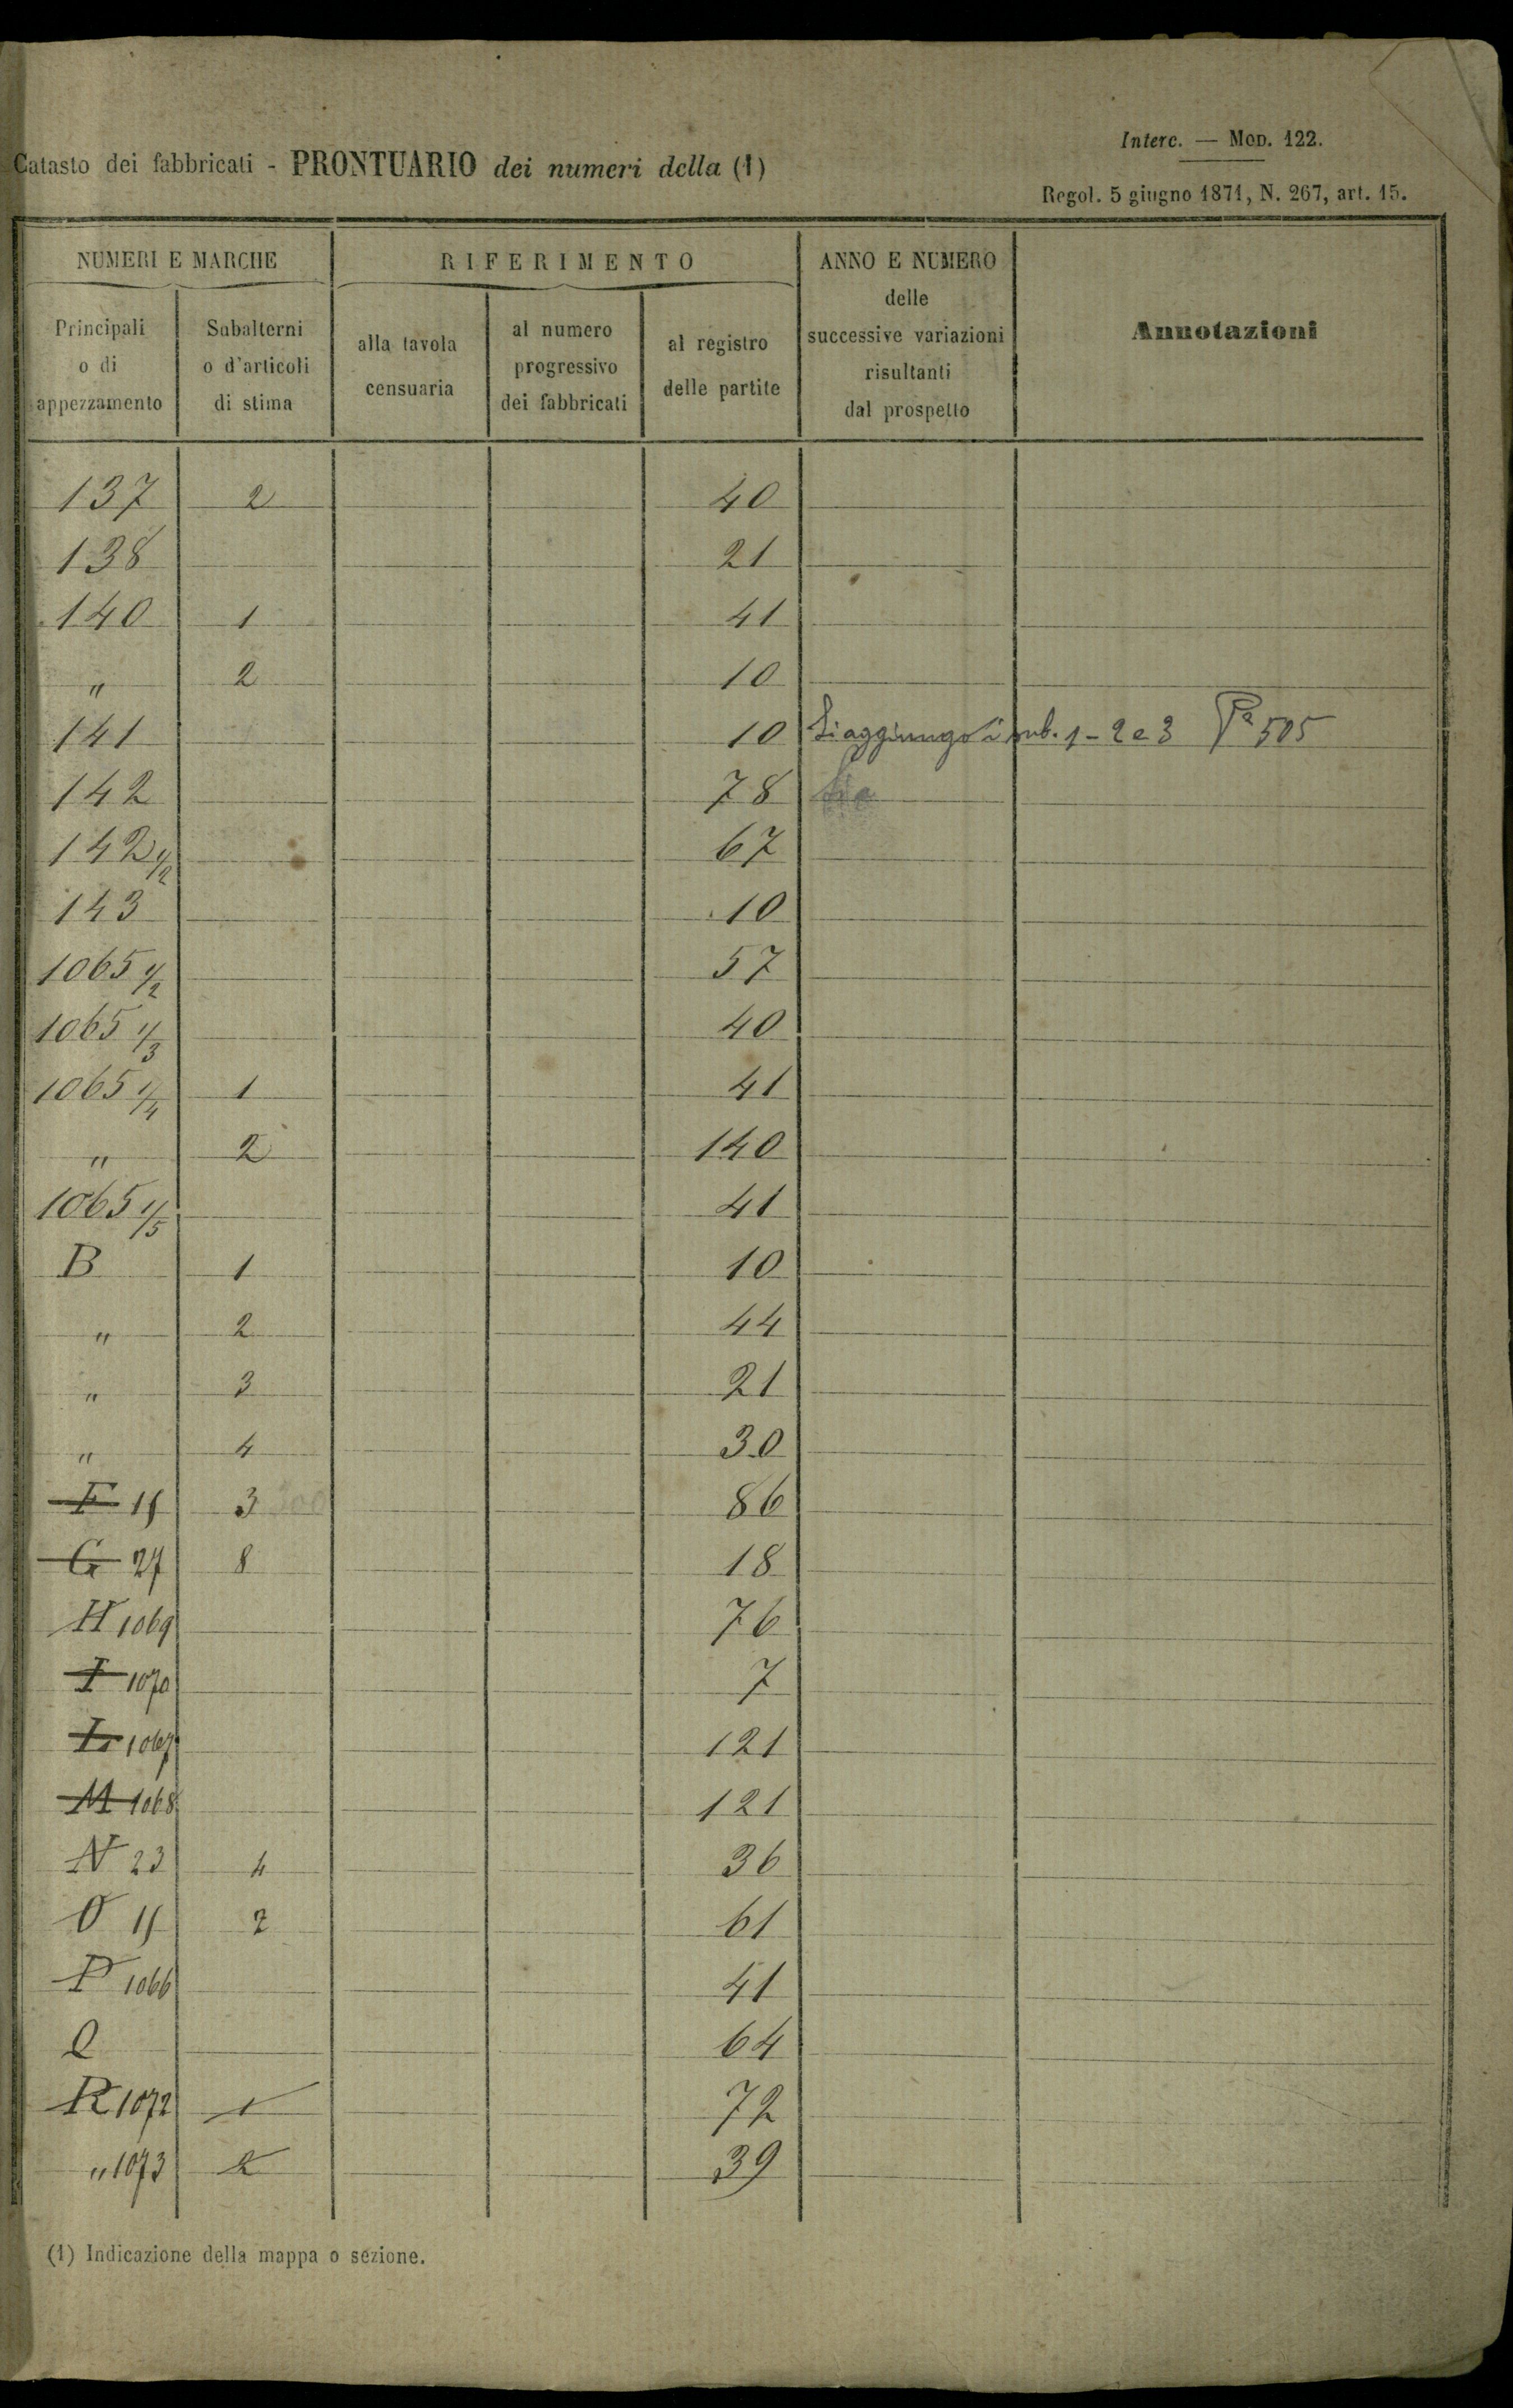 Interc. — Mod. 122.
Catasto dei fabbricati - PRONTUARIO dei numeri della (1)
Regol. 5 giugno 1871, N. 267, art. 15.
NUMERI E MARCHE
RIFERIMENTO
ANNO E NUMERO
delle
successive variazioni
risultanti
dal prospetto
Annotazioni
Principali
o di
appezzamento
Subalterni
o d'articoli
di stima
alla tavola
censuaria
al numero
progressivo
dei fabbricati
al registro
delle partite
137 2 40
138 21
140 1 41
" 2 10
141 10 Si aggiungo i sub. 1 - 2 e 3 Pa 505
142 78
142 1/2 67
143 10
1065 1/2 57
1065 1/3 40
1065 1/4 1 41
" 2 140
1065 1/5 41
B 1 10
" 2 44
" 3 21
" 4 30
F 15 3 86
G 27 8 18
H 1069 76
I 1070 7
L 1067 121
M 1068 121
N 23 4 36
O 15 2 61
P 1066 41
Q 64
R 1072 1 72
" 1073 2 39
(1) Indicazione della mappa o sezione.